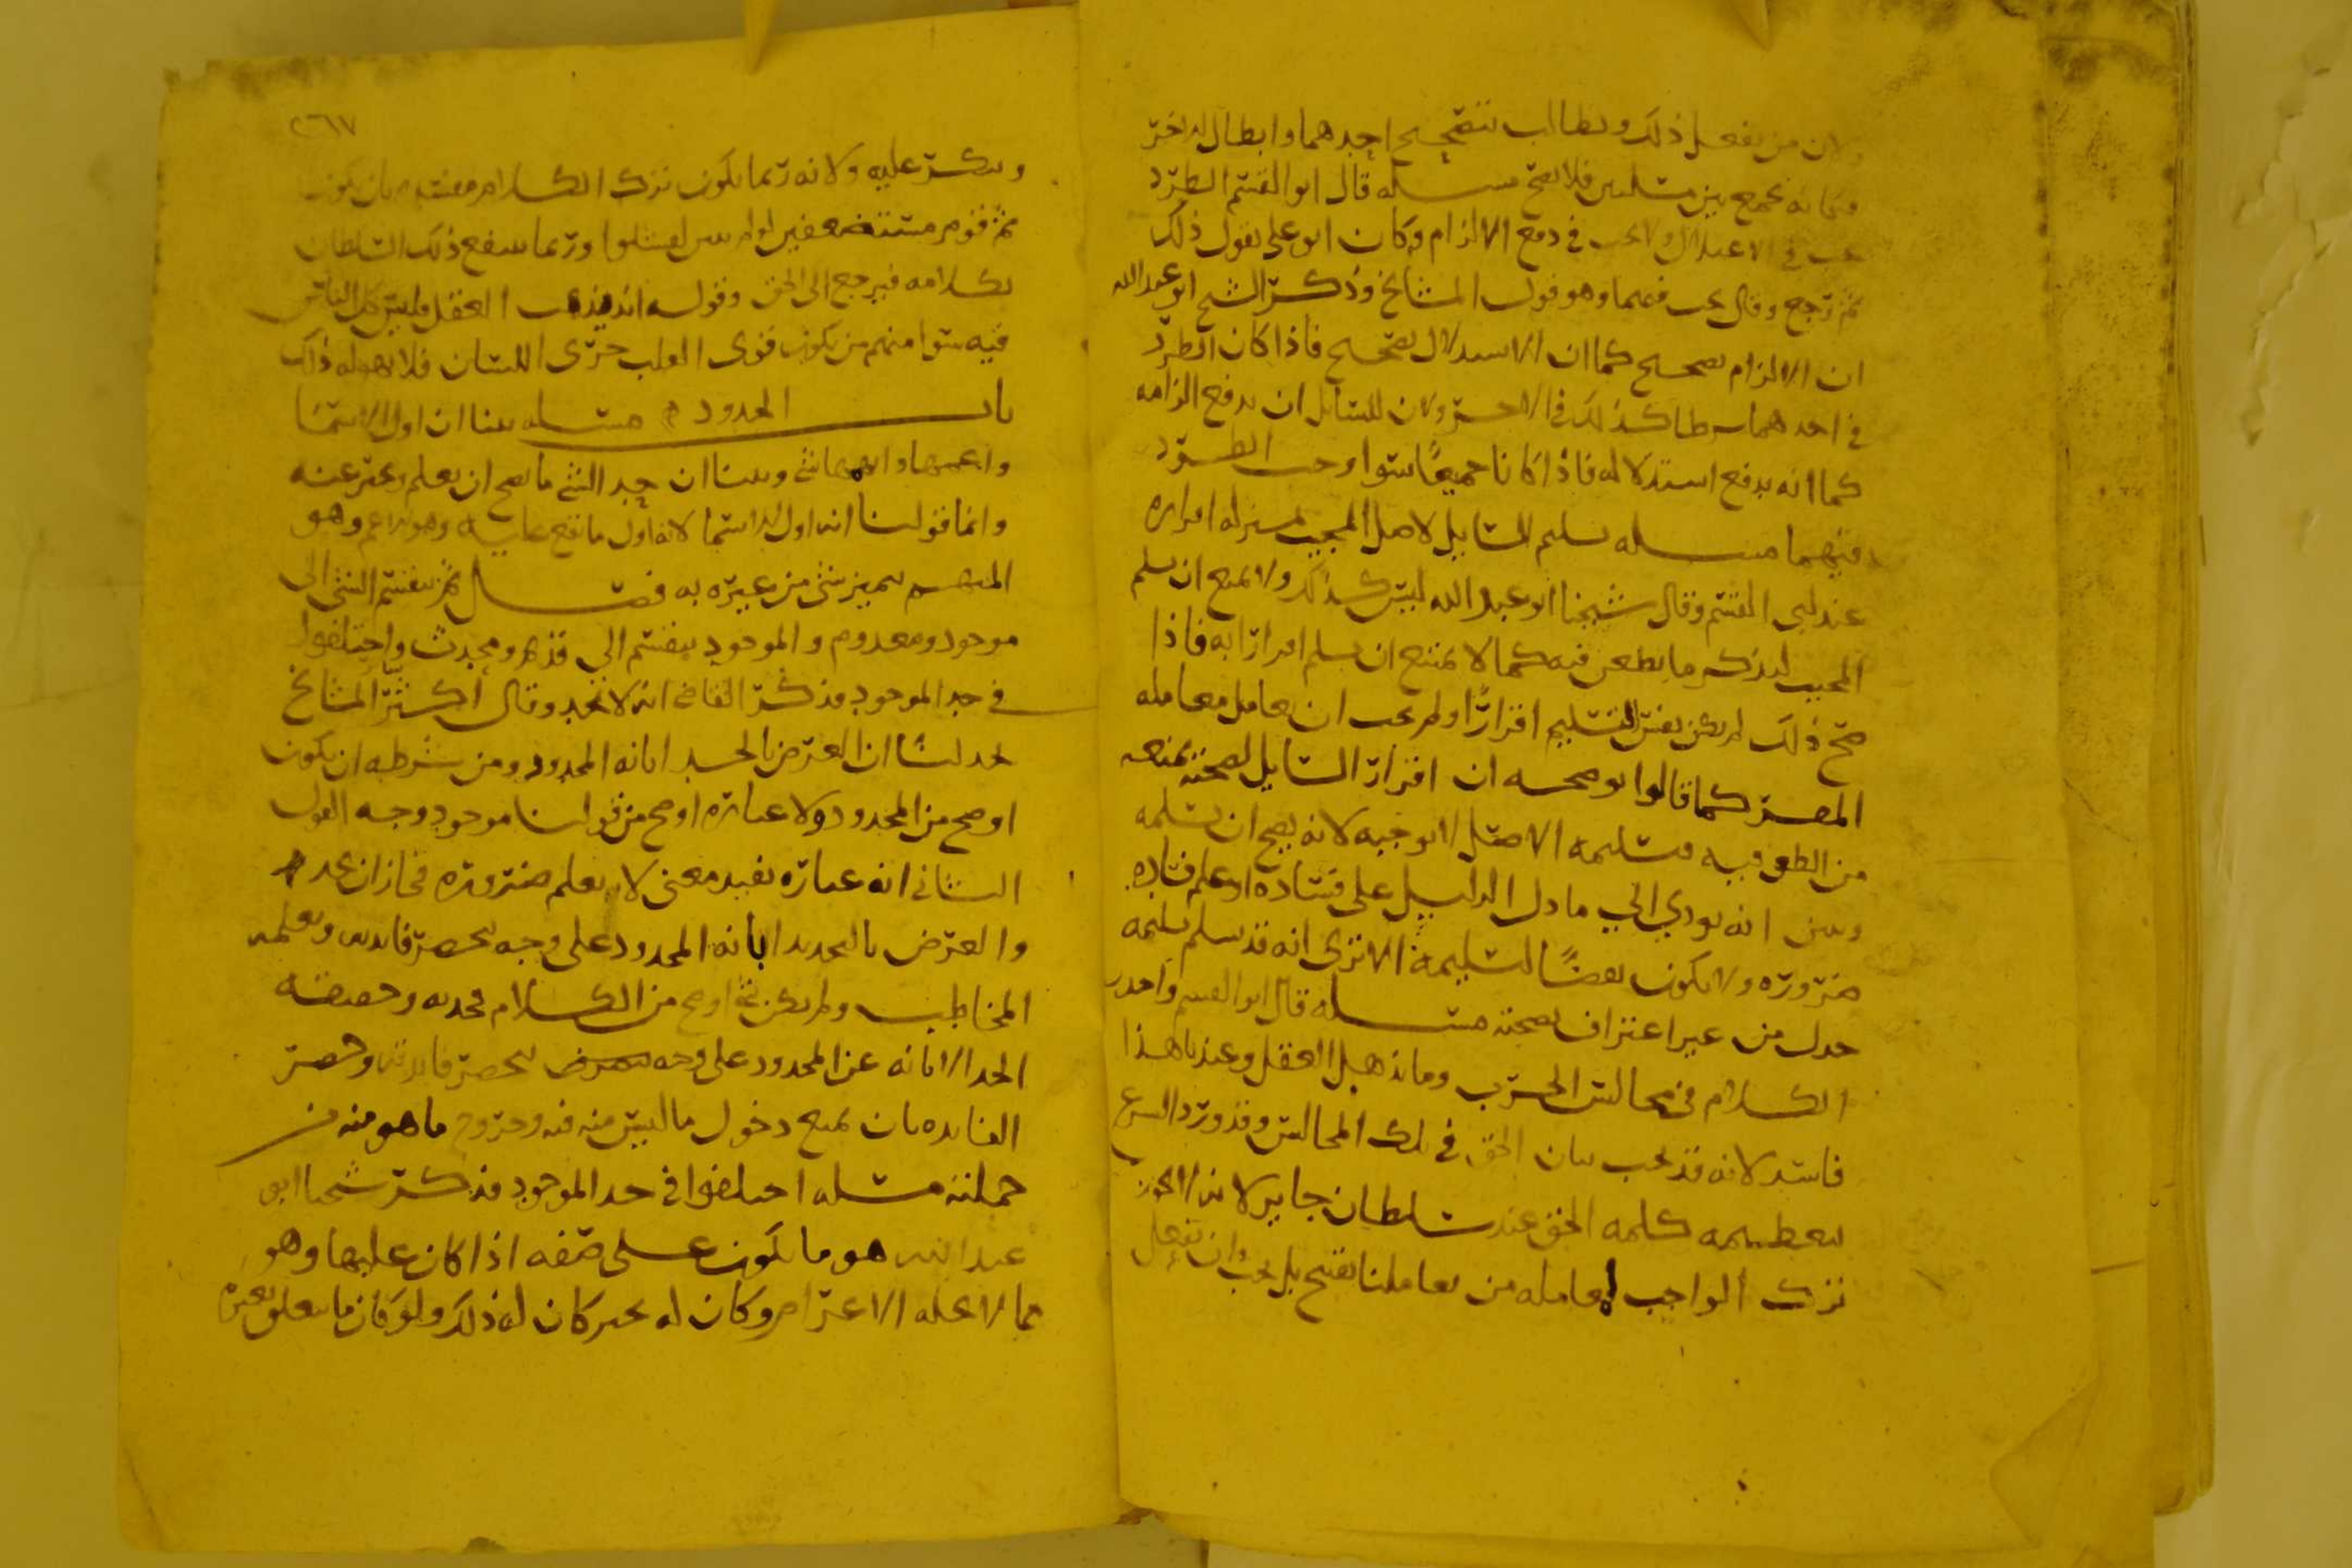 من يفعل ذلك ويطالب بتصحيح احدهما وابطال الاخر
فكانه يجمع بين مسلتين فلا يصح مسله قال ابو القسم الطرد
يجب في الاعتلال ولا يجب في دفع الالزام وكان ابو علي يقول ذلك
ثم رجع وقال يجب فيهما وهو قول المشايخ وذكر الشيخ ابو عبد الله
ان الالزام تصحيح كما ان الاستدلال تصحيح فاذا كان الطرد
في احدهما شرطا كذلك في الاخر ولان للسايل ان يدفع الزامه
كما انه يدفع استدلاله فاذا كانا جميعا سوا وجب الطرد
فيهما مسله تسليم السايل لاصل المجيب بمنزله اقراره
عند ابي القسم وقال شيخنا ابو عبد الله ليس كذلك ولا يمنع ان يسلم
المجيب ليذكر ما يطعن فيه كما لا يمتنع ان يسلم اقرارا به فاذا
صح ذلك لم يكن نفس التسليم اقرارا ولم يجب ان يعامل معامله
المقر كما قالوا يوضحه ان اقرار السايل بصحته يمنعه
من الطعن فيه وتسليمه الاصل لا يوجبه لانه يصح ان يسلمه
ويبين انه يودي الى ما دل الدليل على فساده او علم فساده
ضروره ولا يكون نقضا لتسليمه الا ترى انه قد يسلم تسليمه
جدل من غير اعتراف بصحته مسله قال ابو القسم واحذر
الكلام في مجالس الحرب وما يذهل العقل وعندنا هذا
فاسد لانه قد يجب بيان الحق في تلك المجالس وقد ورد الشرع
بتعظيمه كلمه الحق عند سلطان جاير لانه لا يجوز
ترك الواجب لمعامله من يعاملنا بقبيح بل يجب ان نفعل
٢٦٧
وينكر عليه ولانه ربما يكون ترك الكلام مفسده بان يكون
ثم قوم مستضعفين لو لم يبين لفشلوا وربما ينتفع ذلك السلطان
بكلامه فيرجع الى الحق وقوله انه يذهب العقل فليس كل الناس
فيه سوا منهم من يكون قوى القلب جرى اللسان فلا يهوله ذلك
باب الحدود مسله بينا ان اول الاسما
واعمها وابهمها شى وبينا ان حد الشى ما يصح ان يعلم ويخبر عنه
وانما قولنا انه اول الاسما لانه اول ما يقع عليه وهو اعم وهو
المبهم يميز شى من غيره به فصل ثم ينقسم الشى الى
موجود ومعدوم والموجود ينقسم الى قديم ومحدث واختلفوا
في حد الموجود فذكر القاضى انه لا يحد وقال اكثر المشايخ
يحد لنا ان الغرض بالحد ابانه المحدود ومن شرطه ان يكون
اوضح من المحدود ولا عباره اوضح من قولنا موجود وجه القول
الثاني انه عباره تفيد معنى لا يعلم ضروره فجاز ان يحد
والغرض بالتحديد ابانه المحدود على وجه يحصر فايدته ويعلمه
المخاطب ولم يكن شى اوضح من الكلام فحد به وحقيقه
الحد الابانه عن المحدود على وجه يحصر فايدته وحصر
الفايده بان يمنع دخول ما ليس منه فيه وخروج ما هو منه من
جملته مسله اختلفوا في حد الموجود فذكر شيخنا ابو
عبد الله هو ما يكون على صفه اذا كان عليها وهو